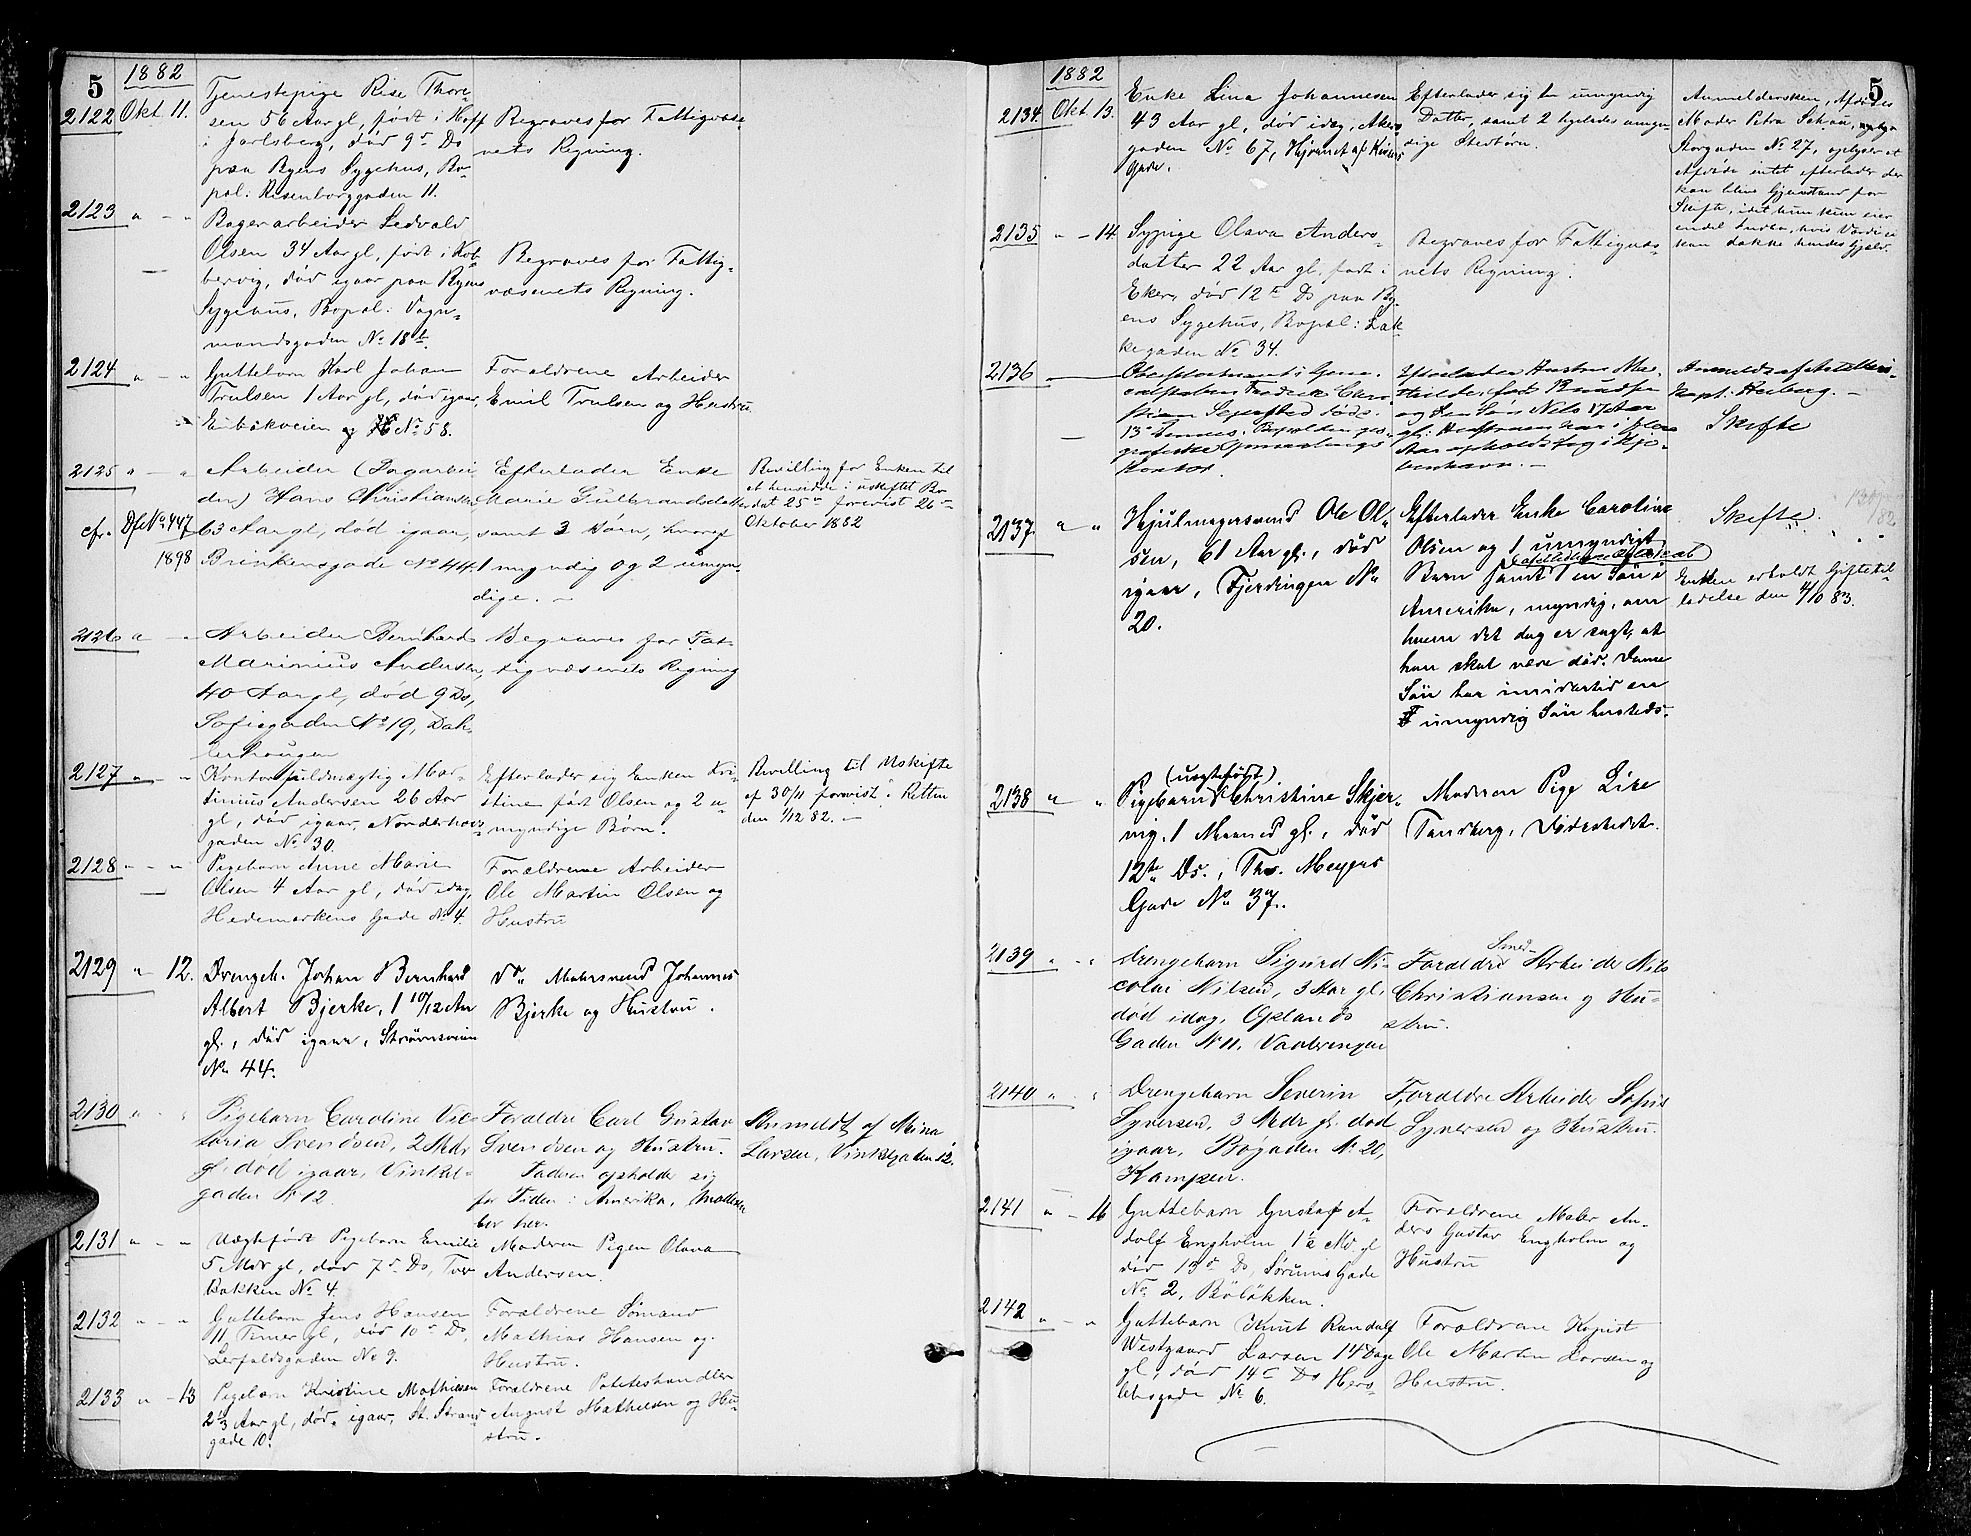 5
1882
2122 Okt 11. Tjenestepige Rise Thore-
sen 56 Aar gl, født i Hoff
i Jarlsberg, død 9de Ds
paa Byens Sygehus, Bo-
pæl: Rosenborggaden 11.
Begraves for Fattigvæse-
nets Regning.
2123 " - " Bagerarbeider Ledvald
Olsen 34 Aar gl, født i
død igaar paa Byens
Sygehus, Bopæl: Vogn-
mandsgaden No 18b.
Begraves for Fattig-
væsenets Regning.
2124 " - " Guttebarn Karl Johan
Trulsen 1 Aar gl, død igaar,
Enbakveien No 58.
Forældrene Arbeider
Emil Trulsen og Hustru
2125 " - " Arbeider (Dagarbei-
der) Hans Christiansen
63 Aar gl, død igaar,
Brinkensgade No 44.
cfr. Dfe No 447
1898
Efterlader Enke
Marie Gulbrandsdatter
samt 3 Børn, hvoraf
1 myndig og 2 umyn-
dige. -
Bevilling for Enken til
at hensidde i uskiftet Bo
dat 25de forevist 26de
Oktober 1882
2126 " - Arbeider Bernhard
Marinius Andersen,
40 Aar gl, død 9 Ds,
Sofiegaden No 19, Dæh-
lenhougen
Begraves for Fat-
tigvæsenets Regning
2127 " - " Kontorfuldmægtig Mar-
tinius Andersen 26 Aar
gl, død igaar, Norderhovs
gaden No 30.
Efterlader sig Enken Kri-
stine født Olsen og 2 u-
myndige Børn.
Bevilling til Uskifte
af 30/11 forevist i Retten
den 1/12 82. -
2128 " - " Pigebarn Anne Marie
Olsen 4 Aar gl, død idag,
Hedemarkens Gade No 4.
Forældrene Arbeider
Ole Martin Olsen og
Hustru
2129 " 12. Drengeb. Johan Bernhard
Albert Bjerke, 1 10/12 Aar
gl., død igaar, Strømsveien
No 44.
Do. Malersvend Johannes
Bjerke og Hustru.
2130 " " Pigebarn Caroline Vic-
toria Svendsen, 2 Mdr
gl. død igaar, Vinkel-
gaden No 12
Forældre Carl Gustav
Svendsen og Hustru.
Faderen opholder sig
for Tiden i Amerika, Moderen
bor her.
Anmeldt af Mina
Larsen, Vinkelgaden 12.
2131 " - " Uægtefødt Pigebarn Emilie
5 Mdr gl, død 7de Ds, Tvær
Bakken No 4.
Moderen Pigen Olava
Andersen.
2132 " - " Guttebarn Jens Hansen
11 Timer gl, død 10de Ds,
Lerfaldsgaden No 9.
Forældrene Sømand
Mathias Hansen og
Hustru.
2133 " - 13 Pigebarn Kristine Mathiesen
2 1/3 Aar gl, død igaar, St. Strand
gade 10.
Forældrene Poteteshandler
August Mathiesen og Hu-
stru.
1882
5
2134 Okt 13. Enke Lina Johannesen
43 Aar gl, død idag, Akers
gaden No 67, Hjørnet af
Gade.
Efterlader sig 1 umyndig
Datter, samt 2 ligeledes umyn-
dige Stedbørn.
Anmeldersken, Afdødes
Moder Petra Schou,
Storgaden No 27, oplyser at
Afdøde intet efterlader der
kan blive Gjenstand for
Skifte, idet hun kun eier
endel Indbo, hvis Værdi ei
kan dække hendes Gjæld.
2135 " - 14 Sypige Olava Anders-
datter 22 Aar gl. født i
Eker, død 12te Ds paa By-
ens Sygehus, Bopæl: Lak-
kegaden No 34.
Begraves for Fattigvæs-
nets Regning.
2136 Oberstløitnant i Gene-
ralstaben Fredrik Chri-
stian Sejersted døde
13de dennes. Bopæl den geo-
grafiske Opmaalings
Kontor.
Efterlader Hustru Ma-
thilde, født
og en Søn Nils 17 Aar
gl. Hustruen har i flere
Aar opholdt sig i Kjø-
benhavn. -
Anmeldt af Artilleri-
kapt. Heiberg. -
Skifte
2137 " " Hjulmagersvend Ole Ol-
sen, 61 Aar gl., død
igaar, Fjerdingen No
20.
Efterlader Enke Caroline
Olsen og 1 umyndigt
Barn samt 1 en Søn i
Amerika, myndig, om
hvem det dog er sagt, at
han skal være død. Denne
Søn har imidlertid en
umyndig Søn hersteds.
Skifte
Enken erholdt Giftetil-
ladelse den 11/10 83.
2138 " " (uægtefødt)
Pigebarn Christine Skjer-
vig, 1 Maaned gl., død
12te Ds., Ths. Meyers
Gade No 37.
Moderen Pige Lise
Tandberg, Dødsstedet.
2139 " " Drengebarn Sigurd Ni-
colai Nilsen, 3 Aar gl.
død idag, Oplands
Gaden No 11, Vaalerengen
Smed-
Forældre Arbeider Nils
Christiansen og Hu-
stru.
2140 " " Drengebarn Severin
Syversen, 3 Mdr gl. død
igaar, Bøgaden No 20,
Kampen.
Forældre Arbeider Sofus
Syversen og Hustru.
2141 " - 16 Guttebarn Gustaf A-
dolf Engholm 1 1/2 Md. gl
død 13de Ds, Sørums Gade
No 2, Bøløkken.
Forældrene Maler An-
ders Gustav Engholm og
Hustru
2142 " - " Guttebarn Knut Randolf
Westgaard Larsen 14 Dage
gl., død 14de Ds Hers-
lebsgade No 6.
Forældrene Kopist
Ole Martin Larsen og
Hustru.